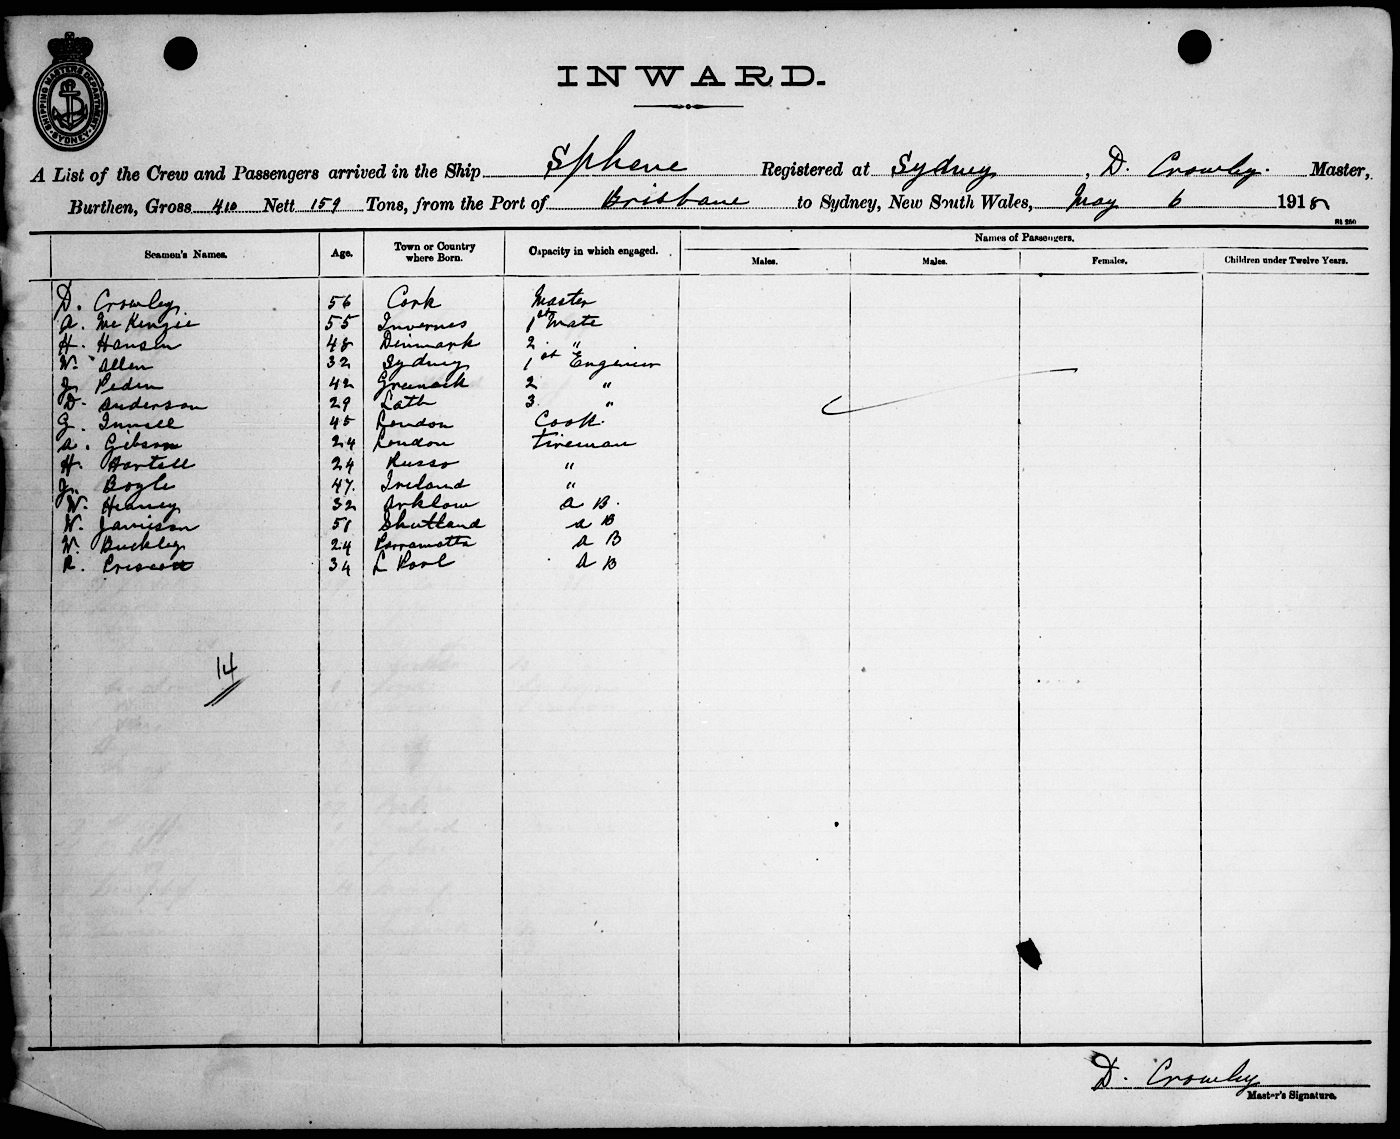 SHIPPING MASTERS DEPARTMENT SYDNEY
INWARD.
A List of the Crew and Passengers arrived in the Ship Sphene Registered at Sydney, D. Crowley. Master,
Burthen, Gross 410 Nett 159 Tons, from the Port of Brisbane to Sydney, New South Wales, May 6 1918
Names of Passengers.
Seamen's Names. Age. Town or Country where Born. Capacity in which engaged. Males. Males. Females. Children under Twelve Years.
D. Crowley 56 Cork Master
A. McKenzie 55 Invernes 1st Mate
H. Hansen 48 Denmark 2 "
W. Allen 32 Sydney 1st Engineer
J. Peden 42 Greenock 2 "
D. Anderson 29 Leth 3 "
G. 45 London Cook
A. Gibson 24 London Fireman
H. Hartell 24 Russo "
J. Boyle 47 Ireland "
W. Heaney 32 Arklow A B
W. Jamieson 51 Shetland A B
W. Buckley 24 Parramatta A B
R. Criscott 34 L Pool A B
14
D. Crowley
Master's Signature.